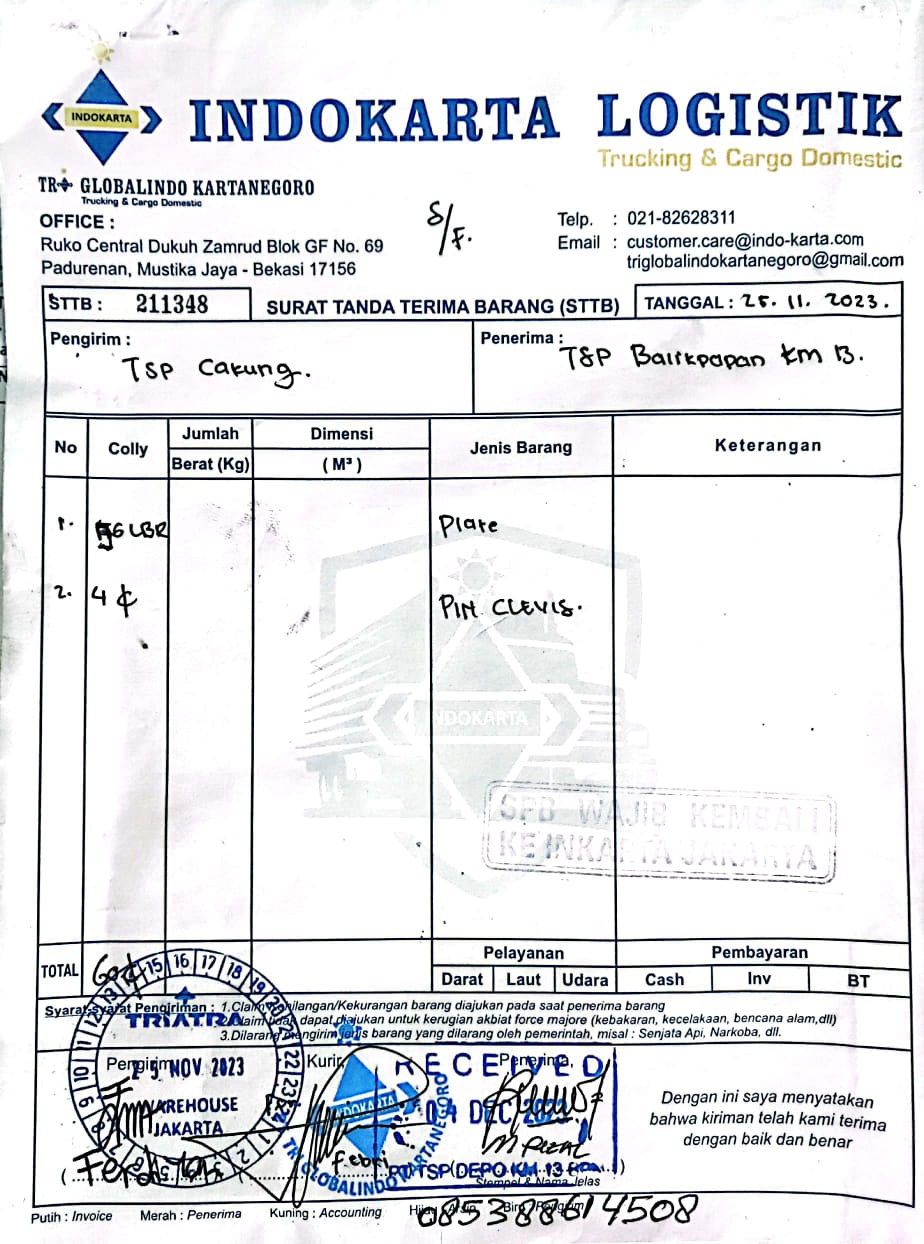 INDOKARTA
INDOKARTA LOGISTIK
Trucking & Cargo Domestic
TRI GLOBALINDO KARTANEGORO
Trucking & Cargo Domestic
OFFICE :
Ruko Central Dukuh Zamrud Blok GF No. 69
Padurenan, Mustika Jaya - Bekasi 17156
S/F.
Telp. : 021-82628311
Email : customer.care@indo-karta.com
triglobalindokartanegoro@gmail.com
STTB : 211348
SURAT TANDA TERIMA BARANG (STTB)
TANGGAL : 25. 11. 2023.
Pengirim :
TSP Cakung.
Penerima :
TSP Balikpapan KM 13.
No Colly Jumlah Dimensi Jenis Barang Keterangan
Berat (Kg) ( M³ )
1. 56 LBR Plate
2. 4 PIN CLEVIS.
INDOKARTA
SPB WAJIB KEMBALI
KE INKARTA JAKARTA
TOTAL 60
Pelayanan Pembayaran
Darat Laut Udara Cash Inv BT
Syarat-Syarat Pengiriman : 1.Claim Kehilangan/Kekurangan barang diajukan pada saat penerima barang
2.Claim tidak dapat diajukan untuk kerugian akbiat force majore (kebakaran, kecelakaan, bencana alam,dll)
3.Dilarang mengirim jenis barang yang dilarang oleh pemerintah, misal : Senjata Api, Narkoba, dll.
Pengirim Kurir Penerima,
TRIATRA
25 NOV 2023
WAREHOUSE
JAKARTA
INDOKARTA
TRI GLOBALINDO KARTANEGORO
Febri
RECEIVED
04 DEC 2023
PT TSP DEPO KM 13
Stempel & Nama Jelas
Dengan ini saya menyatakan
bahwa kiriman telah kami terima
dengan baik dan benar
Putih : Invoice Merah : Penerima Kuning : Accounting Hijau : Arsip Biru : Pengirim
085388614508